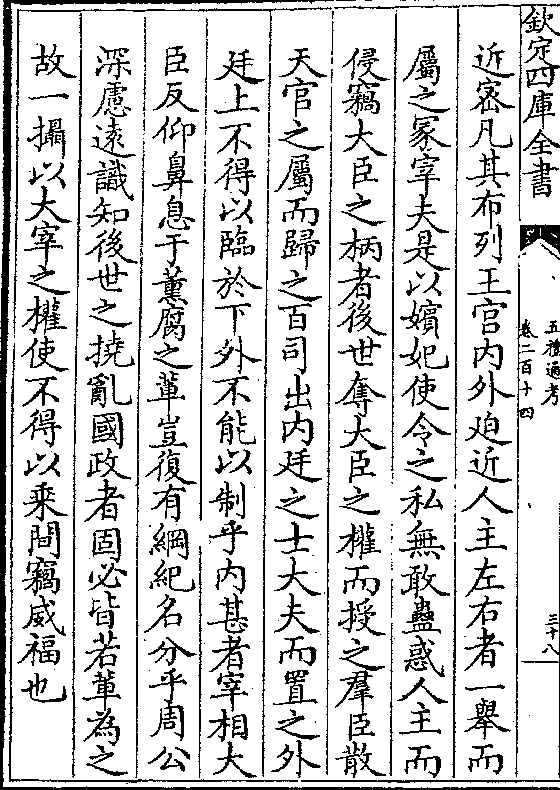 欽定四庫全書
五禮通考
卷二百十四
三十八
近密凡其布列王官內外廹近人主左右者一舉而
屬之冡宰夫是以嬪妃使令之私無敢蠱惑人主而
侵竊大臣之柄者後世奪大臣之權而授之羣臣散
天官之屬而歸之百司出内廷之士大夫而置之外
廷上不得以臨於下外不能以制乎内甚者宰相大
臣反仰鼻息于薰腐之輩豈復有綱紀名分乎周公
深慮逺識知後世之撓亂國政者固必皆若軰為之
故一攝以大宰之權使不得以乗間竊威福也